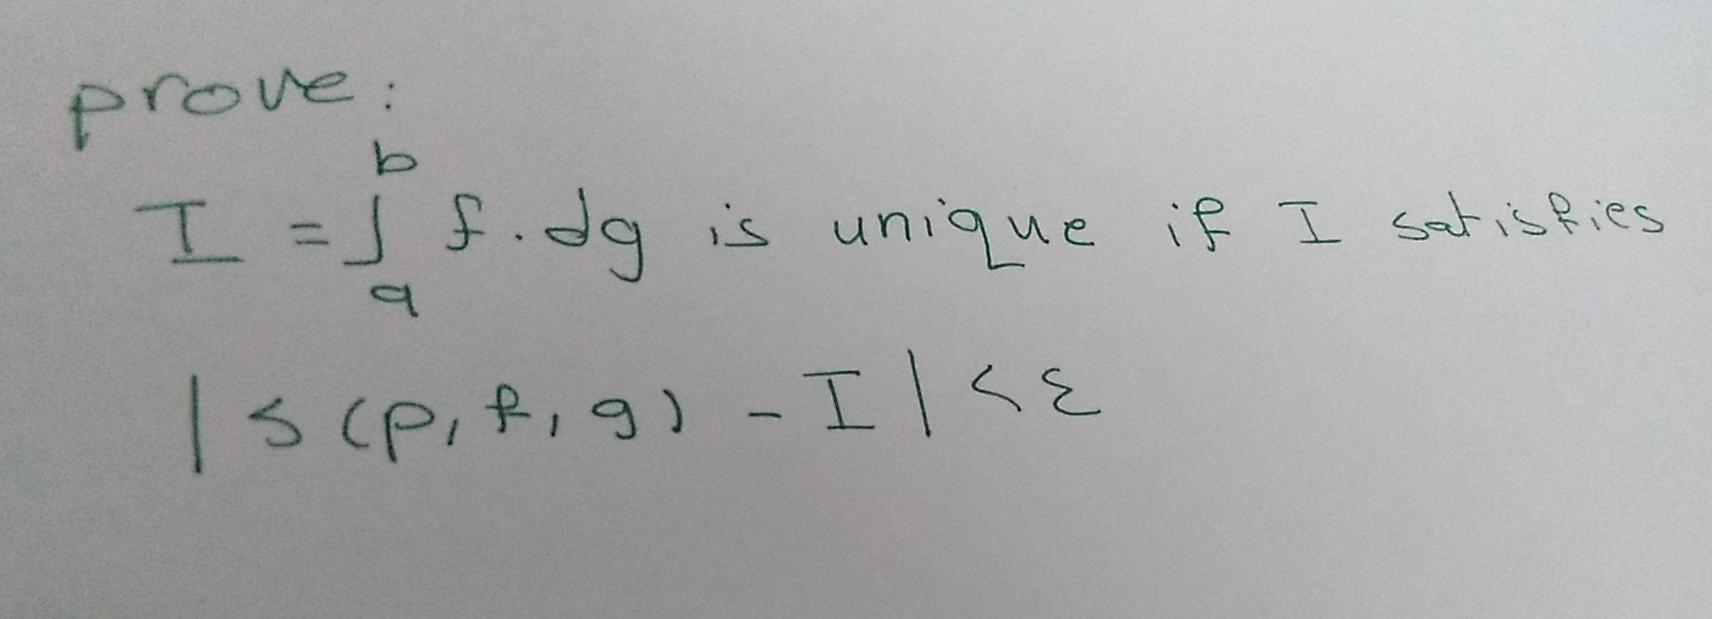 prove:
I = ∫_a^b f.dg is unique if I satisfies
| S(P, f, g) - I | < ε